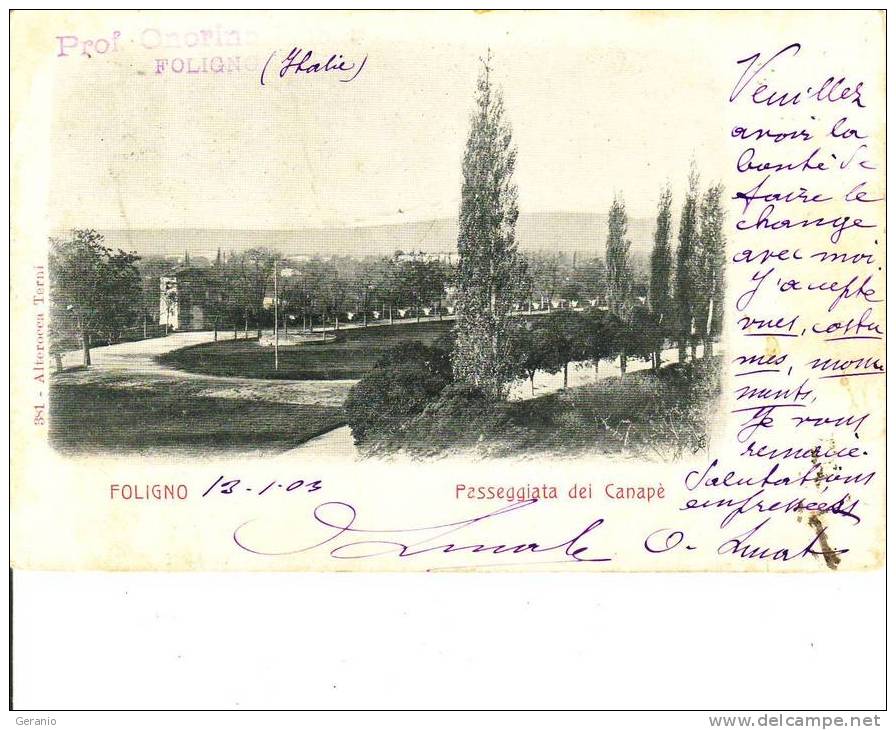 Prof. Onorino
FOLIGNO (Italie)
Veuillez
avoir la
bonté de
faire le
change
avec moi
J'acepte
vues, costu
mes, monu
ments.
Je vous
remacie.
Salutations
empressées
381 - Alterocca Terni
FOLIGNO 13-1-03 Passeggiata dei Canapè
O.
Geranio
http://www.delcampe.net